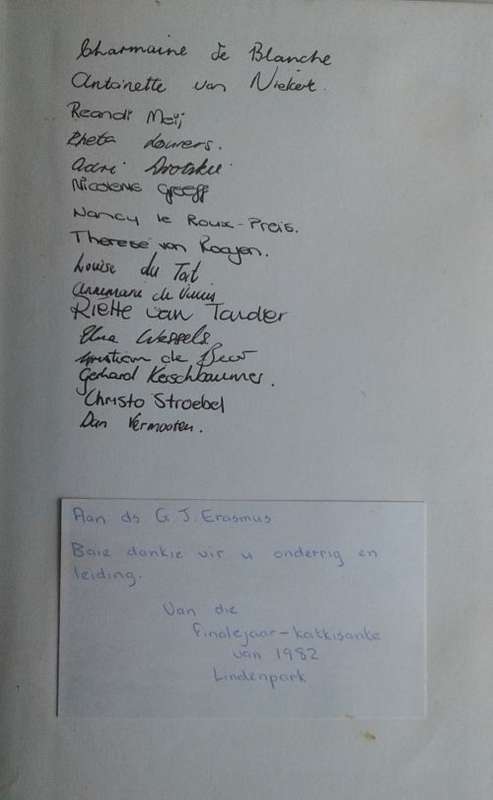 Charmaine de Blanche
Antoinette van Niekerk.
Reandi Meij
Rheta Louwers.
Adri Drotskie
Nicolene Greeff
Nancy le Roux-Preis.
Therese van Rooyen.
Louise du Toit
Annemarie de Villiers
Riette van Tander
Elna Wessels
Christiaan de Beer
Gerhard Kerschbaumer.
Christo Stroebel
Dan Vermooten.
Aan ds G. J. Erasmus
Baie dankie vir u onderrig en
leiding.
Van die
finalejaar-katkisante
van 1982
Lindenpark